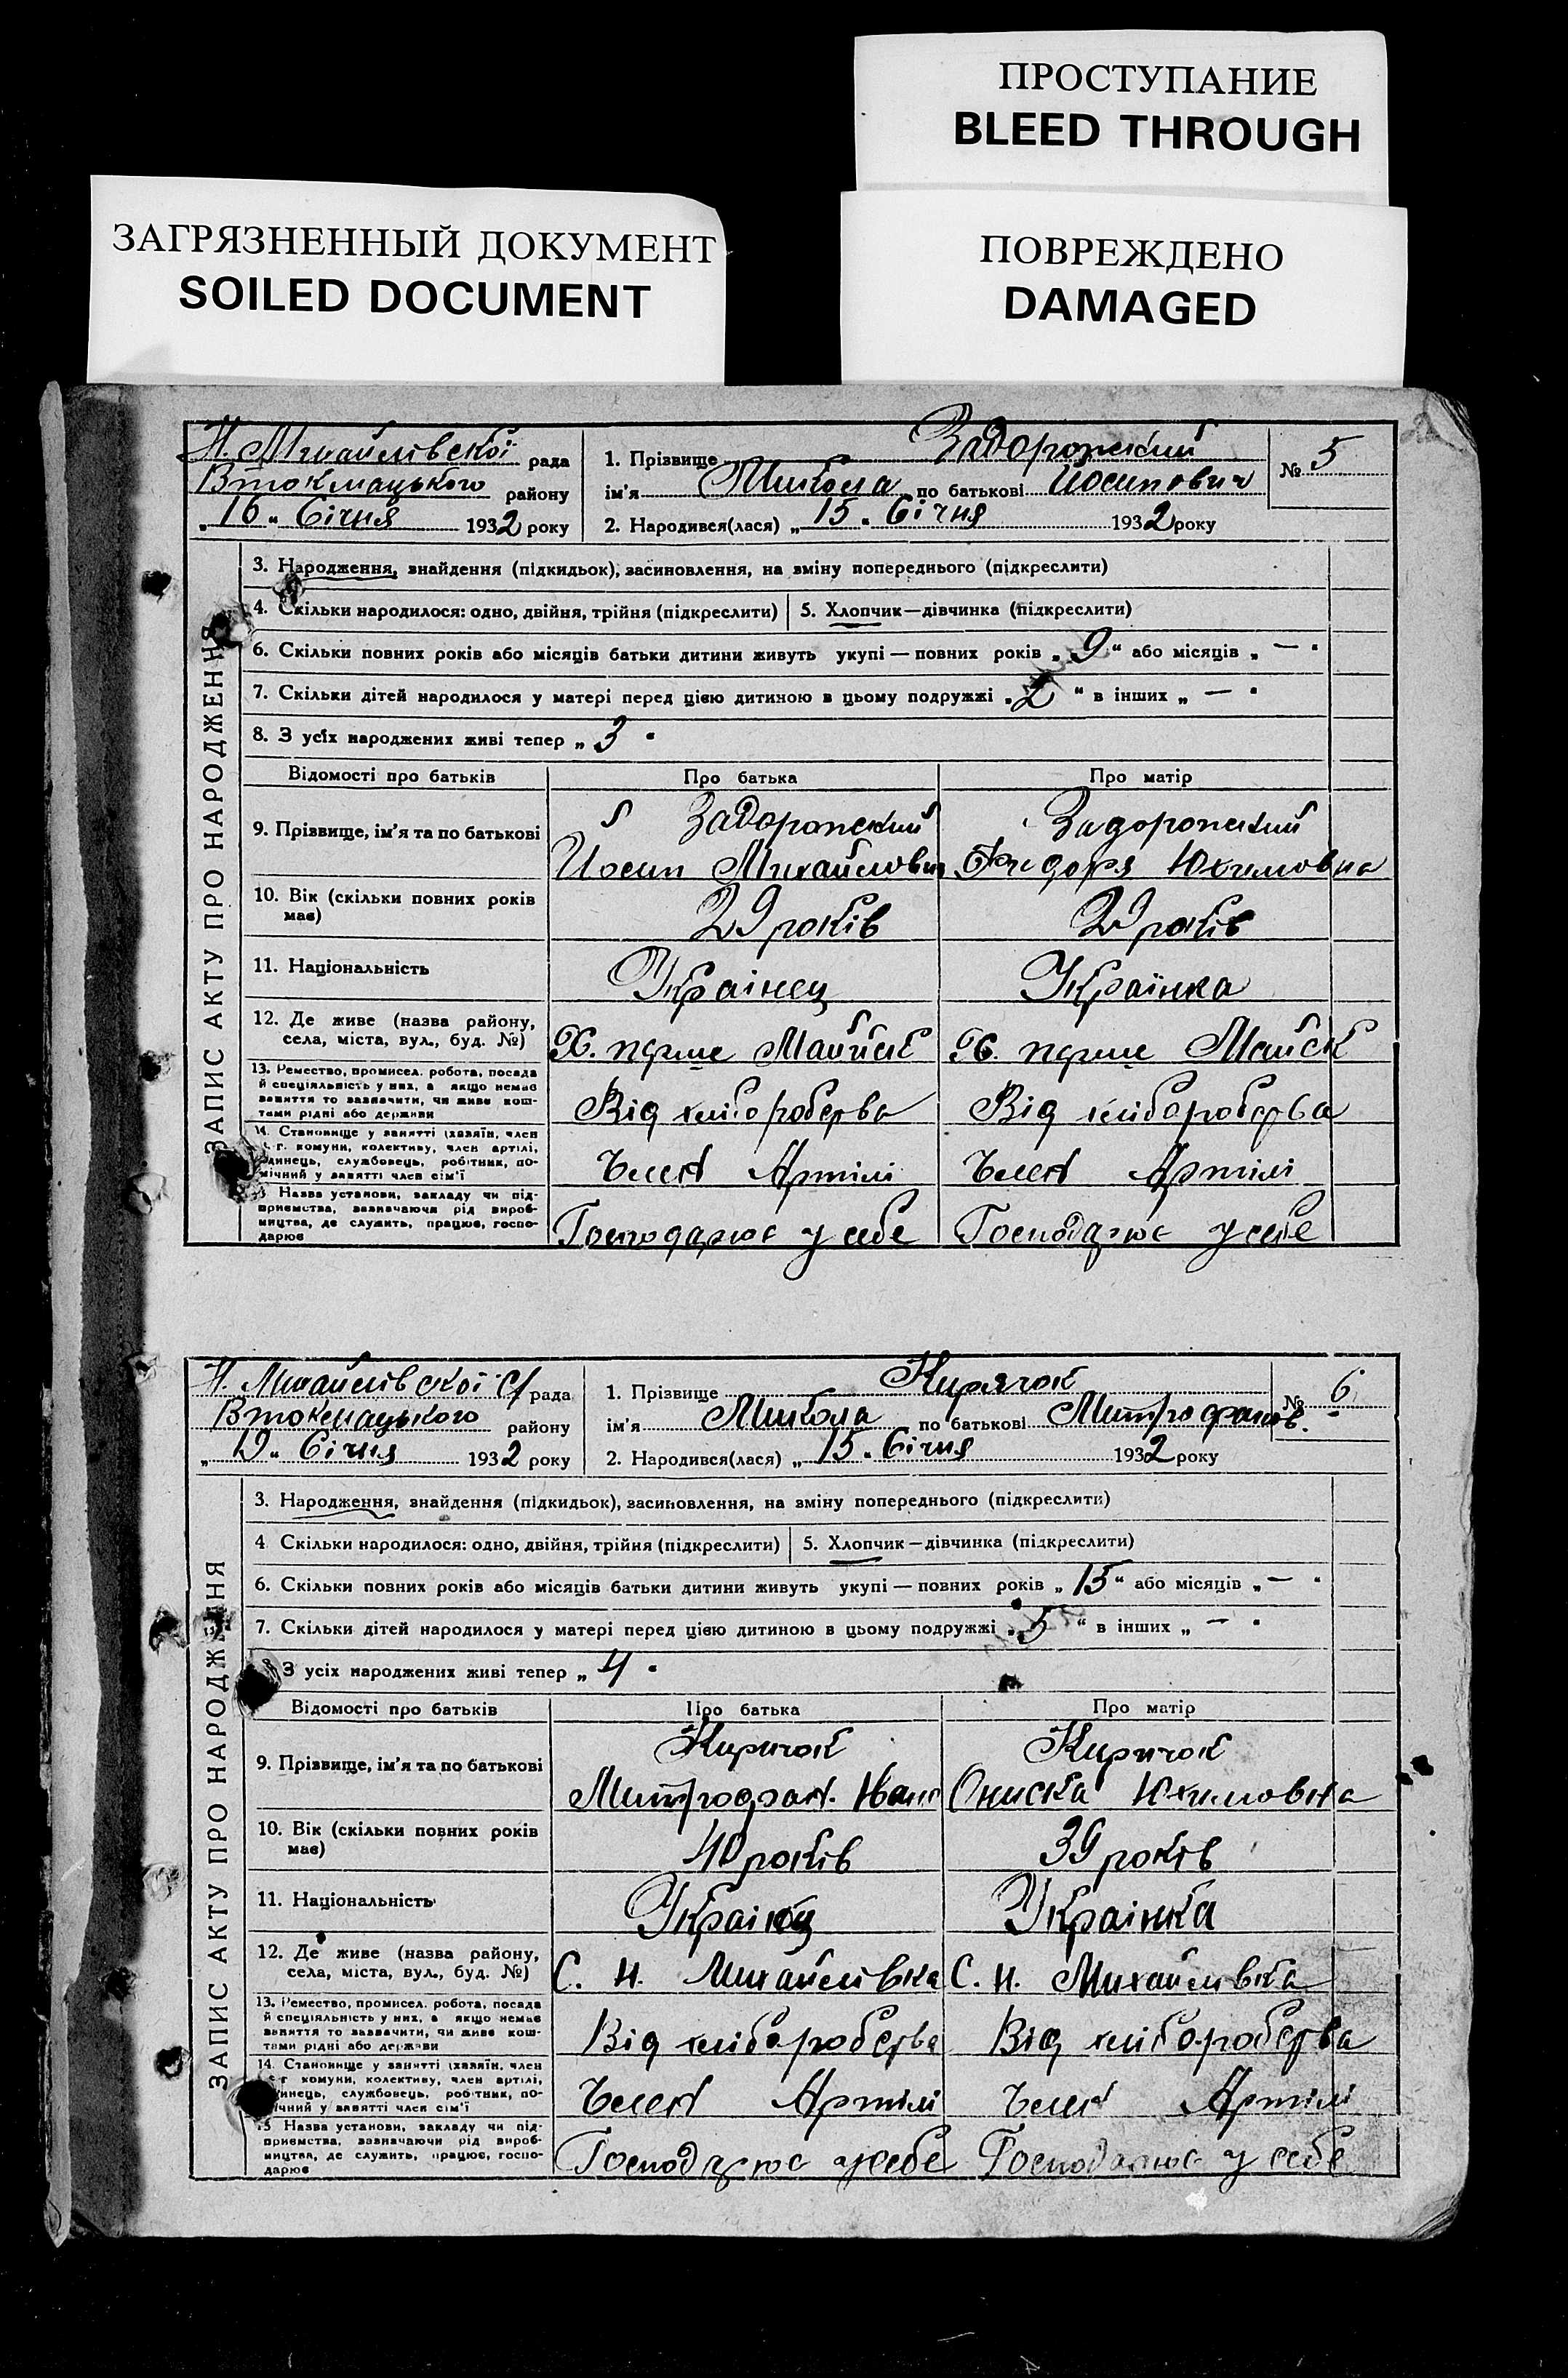 ПРОСТУПАНИЕ
BLEED THROUGH
ЗАГРЯЗНЕННЫЙ ДОКУМЕНТ
SOILED DOCUMENT
ПОВРЕЖДЕНО
DAMAGED
ЗАПИС АКТУ ПРО НАРОДЖЕННЯ
Н. Михайлівської рада
Втокмацького району
„16“ Січня 1932 року
1. Прізвище Задорожский
ім'я Микола по батькові Йосипович
2. Народився(лася) „15“ Січня 1932 року
№ 5
3. Народження, знайдення (підкидьок), засиновлення, на зміну попереднього (підкреслити)
4. Скільки народилося: одно, двійня, трійня (підкреслити) 5. Хлопчик—дівчинка (підкреслити)
6. Скільки повних років або місяців батьки дитини живуть укупі — повних років „9“ або місяців „—“
7. Скільки дітей народилося у матері перед цією дитиною в цьому подружжі „2“ в інших „—“
8. З усіх народжених живі тепер „3“
Відомості про батьків Про батька Про матір
9. Прізвище, ім'я та по батькові
Задорожский Задорожский
Йосип Михайлович Юхимовна
10. Вік (скільки повних років має) 29 років 29 років
11. Національність Украінец Українка
12. Де живе (назва району,
села, міста, вул., буд. №) Х. перше Майськ Х. перше Майськ
13. Ремество, промисел. робота, посада
й спеціяльність у них, а якщо немає
заняття то зазначити, чи живе кош-
тами рідні або держави
Від хліборобства Від хліборобства
14. Становище у занятті (хазяїн, член
с.-г. комуни, колективу, член артілі,
одинець, службовець, робітник, по-
мічний у занятті член сім'ї
Член Артілі Член Артілі
15 Назва установи, закладу чи під-
приємства, зазначаючи рід вироб-
ництва, де служить, працює, госпо-
дарює
Господарює у себе Господарює у себе
ЗАПИС АКТУ ПРО НАРОДЖЕННЯ
Н. Михайлівської с/ рада
Втокмацького району
„19“ Січня 1932 року
1. Прізвище Киричок
ім'я Микола по батькові Митрофанов.
2. Народився(лася) „15“ Січня 1932 року
№ 6
3. Народження, знайдення (підкидьок), засиновлення, на зміну попереднього (підкреслити)
4 Скільки народилося: одно, двійня, трійня (підкреслити) 5. Хлопчик—дівчинка (підкреслити)
6. Скільки повних років або місяців батьки дитини живуть укупі — повних років „15“ або місяців „—“
7. Скільки дітей народилося у матері перед цією дитиною в цьому подружжі „5“ в інших „—“
З усіх народжених живі тепер „4“
Відомості про батьків Про батька Про матір
9. Прізвище, ім'я та по батькові
Киричок Киричок
Митрофан. Иван Ониска Юхимовна
10. Вік (скільки повних років має) 40 років 39 років
11. Національність Українец Українка
12. Де живе (назва району,
села, міста, вул., буд. №) С. Н. Михайлівка С. Н. Михайлівка
13. Ремество, промисел. робота, посада
й спеціяльність у них, а якщо немає
заняття то зазначити, чи живе кош-
тами рідні або держави
Від хліборобства Від хліборобства
14. Становище у занятті (хазяїн, член
с.-г. комуни, колективу, член артілі,
одинець, службовець, робітник, по-
мічний у занятті член сім'ї
Член Артілі Член Артілі
15 Назва установи, закладу чи під-
приємства, зазначаючи рід вироб-
ництва, де служить, працює, госпо-
дарює
Господарює у себе Господарює у себе